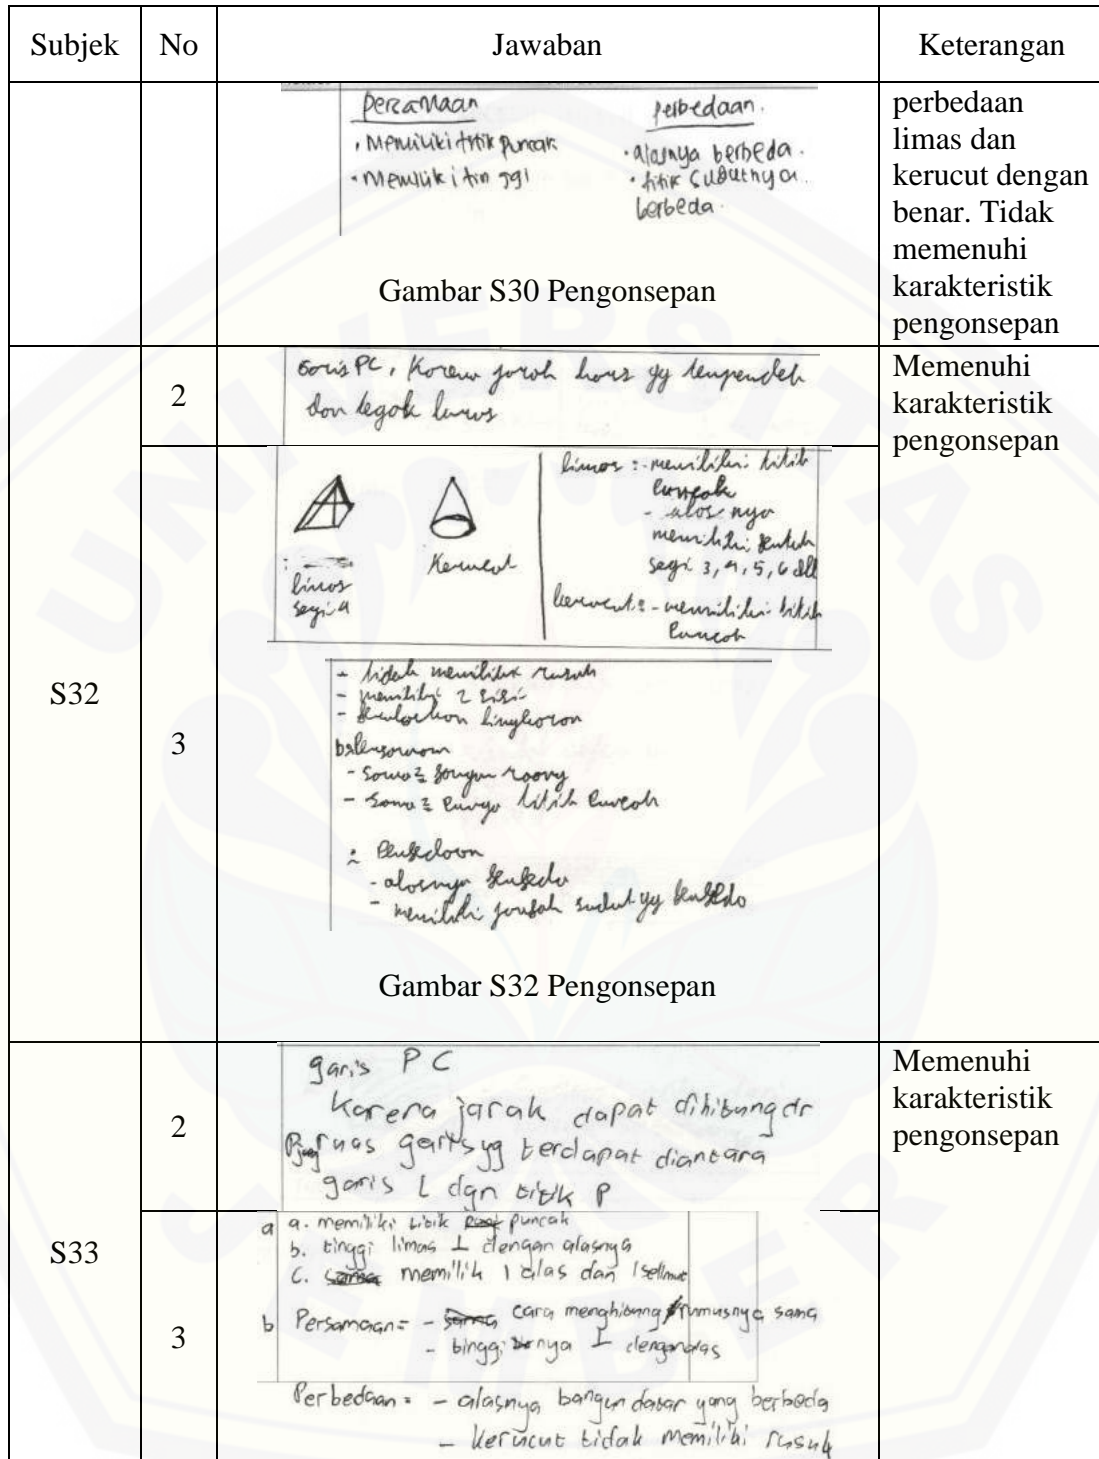 Subjek No Jawaban Keterangan
persamaan
• Memiliki titik puncak
• Memiliki tinggi
perbedaan.
• alasnya berbeda.
• titik sudutnya
berbeda.
Gambar S30 Pengonsepan
perbedaan
limas dan
kerucut dengan
benar. Tidak
memenuhi
karakteristik
pengonsepan
S32
2
Garis PC, Karena jarak harus yg terpendek
dan tegak lurus
Memenuhi
karakteristik
pengonsepan
3
limas
segi 4
Kerucut
limas : - memiliki titik
puncak
- alasnya
memiliki bentuk
segi 3, 4, 5, 6 dll
kerucut : - memiliki titik
puncak
- tidak memiliki rusuk
- memiliki 2 sisi
- lingkaran
b.
- sama2 bangun ruang
- sama2 punya titik puncak
: Perbedaan
- alasnya berbeda
- memiliki jumlah sudut yg berbeda
Gambar S32 Pengonsepan
S33
2
garis PC
Karena jarak dapat dihitung dr
Pjang ruas garis yg terdapat diantara
garis L dgn titik P
Memenuhi
karakteristik
pengonsepan
3
a a. memiliki titik puncak
b. tinggi limas ⊥ dengan alasnya
c. memilik 1 alas dan 1 selimut
b Persamaan = - cara menghitung rumusnya sama
- tingginya ⊥ dengan alas
Perbedaan = - alasnya bangun datar yang berbeda
- kerucut tidak memiliki rusuk
UNIVERSITAS
JEMBER